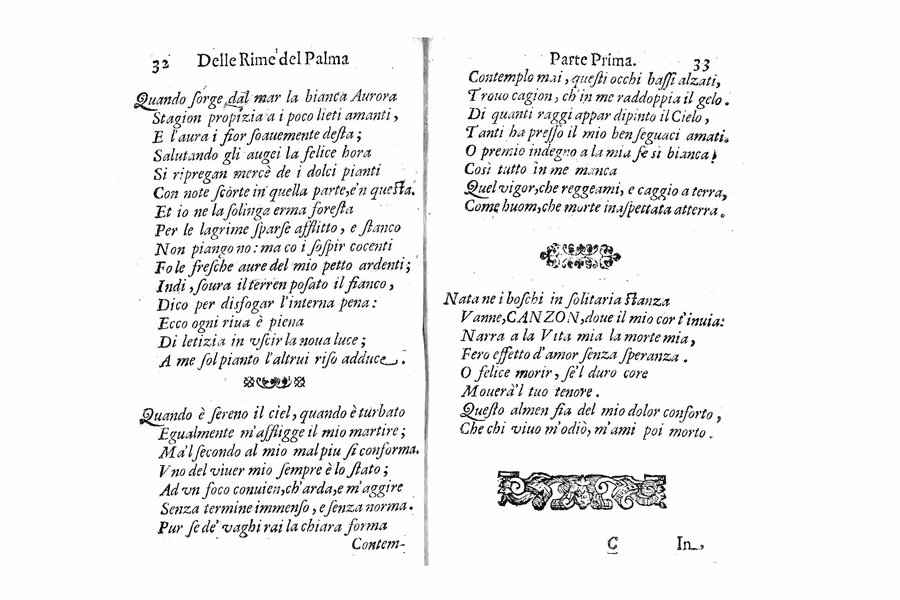 32 Delle Rime del Palma
Quando ſorge dal mar la bianca Aurora
Stagion propizia a i poco lieti amanti,
E l'aura i fior ſoauemente deſta;
Salutando gli augei la felice hora
Si ripregan mercè de i dolci pianti
Con note ſcòrte in quella parte, e'n queſta.
Et io ne la ſolinga erma foreſta
Per le lagrime ſparſe afflitto, e ſtanco
Non piango no: ma co i ſoſpir cocenti
Fo le freſche aure del mio petto ardenti;
Indi, ſoura il terren poſato il fianco,
Dico per disfogar l'interna pena:
Ecco ogni riua è piena
Di letizia in vſcir la noua luce;
A me ſol pianto l'altrui riſo adduce.
Quando è ſereno il ciel, quando è turbato
Egualmente m'affligge il mio martire;
Ma'l ſecondo al mio mal piu ſi conforma.
Vno del viuer mio ſempre è lo ſtato;
Ad vn foco conuien, ch'arda, e m'aggire
Senza termine immenſo, e ſenza norma.
Pur ſe de' vaghi rai la chiara forma
Contem-
Parte Prima. 33
Contemplo mai, queſti occhi baſſi alzati,
Trouo cagion, ch'in me raddoppia il gelo.
Di quanti raggi appar dipinto il Cielo,
Tanti ha preſſo il mio ben ſeguaci amati.
O premio indegno a la mia fe sì bianca!
Così tutto in me manca
Quel vigor, che reggeami, e caggio a terra,
Come huom, che morte inaſpettata atterra.
Nata ne i boſchi in ſolitaria ſtanza
Vanne, CANZON, doue il mio cor t'inuia:
Narra a la Vita mia la morte mia,
Fero effetto d'amor ſenza ſperanza.
O felice morir, ſe'l duro core
Mouerà'l tuo tenore.
Queſto almen fia del mio dolor conforto,
Che chi viuo m'odiò, m'ami poi morto.
C In-